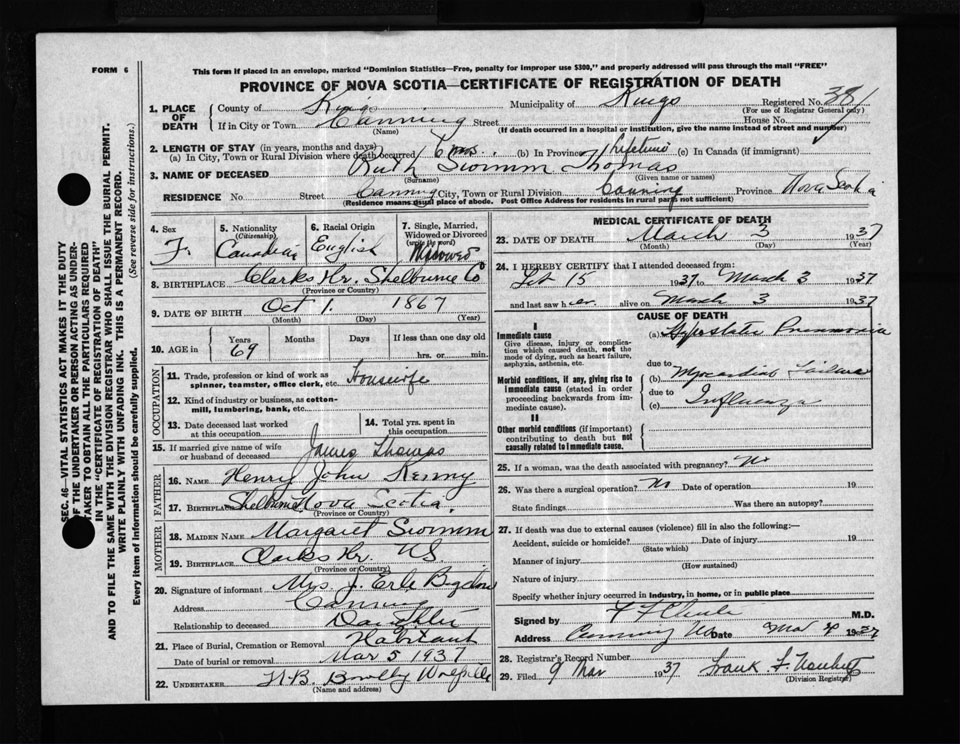 FORM 6
This form if placed in an envelope, marked "Dominion Statistics—Free, penalty for improper use $300," and properly addressed will pass through the mail "FREE"
PROVINCE OF NOVA SCOTIA—CERTIFICATE OF REGISTRATION OF DEATH
1. PLACE OF DEATH { County of Kings Municipality of Kings Registered No. 381
(For use of Registrar General only)
If in City or Town Canning Street House No.
(Name) (If death occurred in a hospital or institution, give the name instead of street and number)
2. LENGTH OF STAY (in years, months and days)
(a) In City, Town or Rural Division where death occurred 6 mos. (b) In Province Lifetime (c) In Canada (if immigrant)
3. NAME OF DECEASED Ruth Swimm Thomas
(Surname) (Given name or names)
RESIDENCE No Street Canning City, Town or Rural Division Canning Province Nova Scotia
(Residence means usual place of abode. Post Office Address for residents in rural parts not sufficient)
4. Sex F.
5. Nationality (Citizenship) Canadian
6. Racial Origin English
7. Single, Married, Widowed or Divorced (write the word) Widowed
8. BIRTHPLACE Clarks Hr. Shelburne Co
(Province or Country)
9. DATE OF BIRTH Oct 1. 1867
(Month) (Day) (Year)
10. AGE in { Years 69 Months Days If less than one day old
hrs. or min.
OCCUPATION
11. Trade, profession or kind of work as spinner, teamster, office clerk, etc. Housewife
12. Kind of industry or business, as cotton-mill, lumbering, bank, etc.
13. Date deceased last worked at this occupation
14. Total yrs. spent in this occupation
15. If married give name of wife or husband of deceased James Thomas
FATHER
16. NAME Henry John Kenny
17. BIRTHPLACE Shelburne Nova Scotia
(Province or Country)
MOTHER
18. MAIDEN NAME Margaret Swimm
19. BIRTHPLACE Clarks Hr. NS
(Province or Country)
20. Signature of informant Mrs. J. Erle
Address Canning
Relationship to deceased Daughter
21. Place of Burial, Cremation or Removal Habitant
Date of burial or removal Mar 5 1937
22. UNDERTAKER
(Name and address)
MEDICAL CERTIFICATE OF DEATH
23. DATE OF DEATH March 3 1937
(Month) (Day) (Year)
24. I HEREBY CERTIFY that I attended deceased from:
Feb 15 1937 to March 3 1937
and last saw her alive on March 3 1937
CAUSE OF DEATH
I
Immediate cause
Give disease, injury or complication which caused death, not the mode of dying, such as heart failure, asphyxia, asthenia, etc.
(a) Hypostatic Pneumonia
due to
Morbid conditions, if any, giving rise to immediate cause (stated in order proceeding backwards from immediate cause).
(b) Myocardial Failure
due to
(c) Influenza
II
Other morbid conditions (if important) contributing to death but not causally related to immediate cause.
25. If a woman, was the death associated with pregnancy? No
26. Was there a surgical operation? No Date of operation 19
State findings Was there an autopsy?
27. If death was due to external causes (violence) fill in also the following:—
Accident, suicide or homicide? Date of injury 19
(State which)
Manner of injury
(How sustained)
Nature of injury
Specify whether injury occurred in industry, in home, or in public place
Signed by M.D.
Address Canning NS Date Mar 1937
28. Registrar's Record Number
29. Filed 9 Mar 1937 Frank
(Division Registrar)
SEC. 46—VITAL STATISTICS ACT MAKES IT THE DUTY OF THE UNDERTAKER OR PERSON ACTING AS UNDERTAKER TO OBTAIN ALL THE PARTICULARS REQUIRED IN THE "CERTIFICATE OF REGISTRATION OF DEATH"
AND TO FILE THE SAME WITH THE DIVISION REGISTRAR WHO SHALL ISSUE THE BURIAL PERMIT.
WRITE PLAINLY WITH UNFADING INK. THIS IS A PERMANENT RECORD.
Every item of information should be carefully supplied. (See reverse side for instructions.)